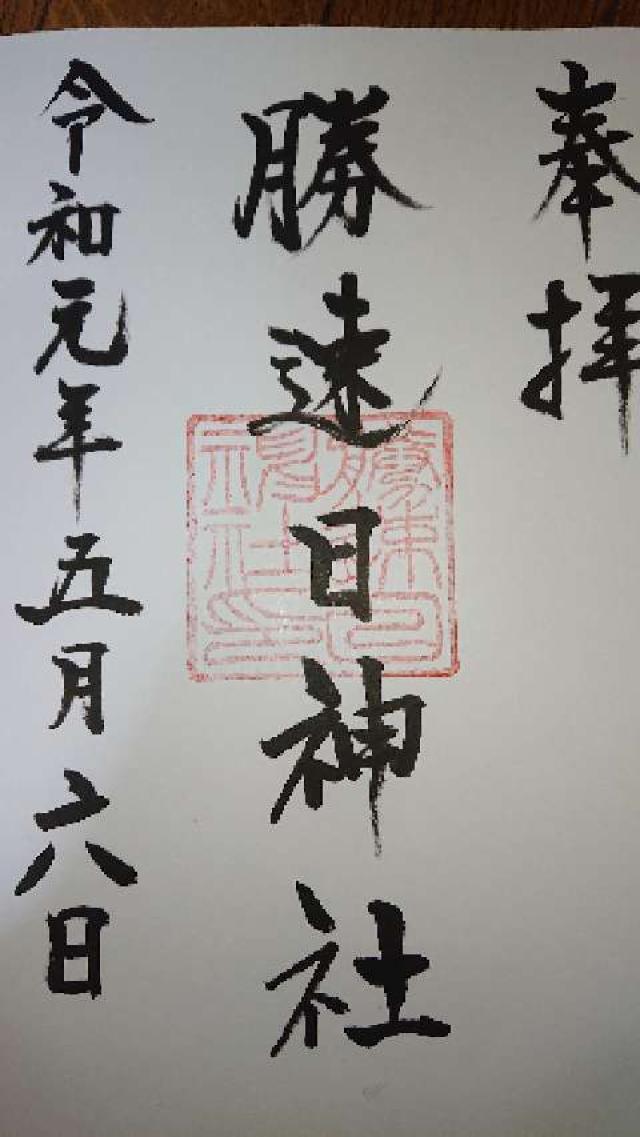 奉拝
勝速日神社
令和元年五月六日